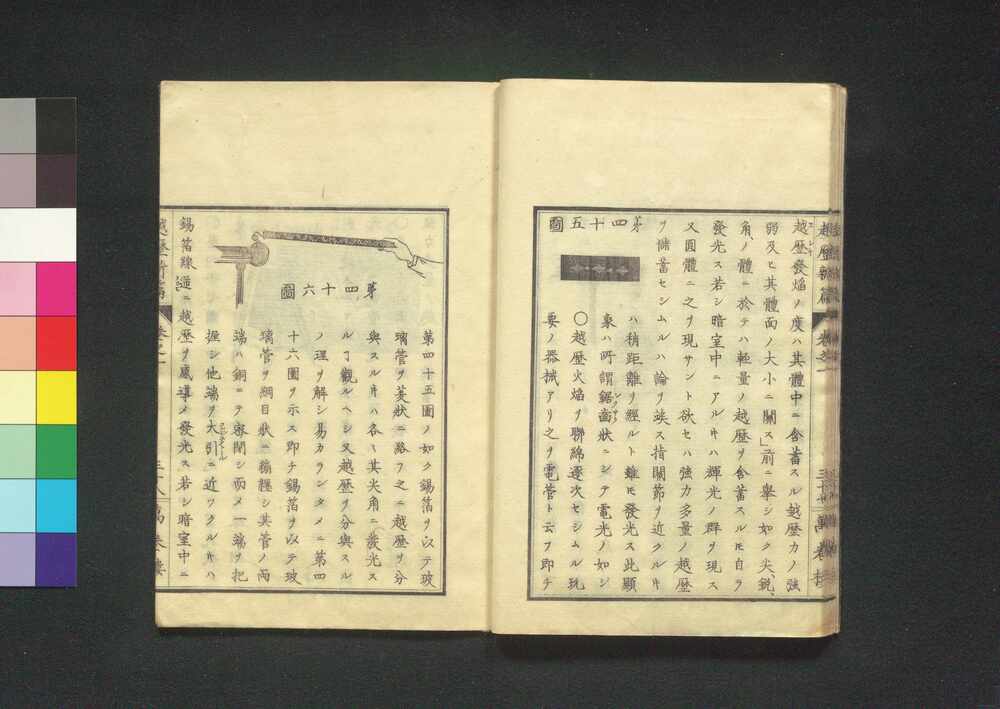 越歴發焰ノ度ハ其體中ニ含蓄スル越歴力ノ強
弱及ヒ其體面ノ大小ニ關ス」前ニ舉シ如ク尖鋭、
角ノ體ニ於テハ輕量ノ越歴ヲ含蓄スルモ自ラ
發光ス若シ暗室中ニアルキハ輝光ノ群ヲ現ス
又圓體ニ之ヲ現サント欲セハ強力多量ノ越歴
ヲ儲蓄セシムルハ論ヲ竢ス指關節ヲ近クルキ
ハ稍距離ヲ經ルト雖モ發光ス此顯
象ハ所謂鋸齒狀ニシテ電光ノ如シ
〇越歴火焰ヲ聯綿逐次セシムル玩
要ノ器械アリ之ヲ電管ト云フ即チ
第四十五圖
第四十五圖ノ如ク錫箔ヲ以テ玻
璃管ヲ菱狀ニ路フ之ニ越歴ヲ分
與スルキハ各〻其尖角ニ發光ス
ルヿ觀ルヘシ又越歴ヲ分與スル
ノ理ヲ解シ易カランタメニ第四
十六圖ヲ示ス即チ錫箔ヲ以テ玻
璃管ヲ網目狀ニ纏經シ其管ノ兩
端ハ銅ニテ密閉シ而メ一端ヲ把
握シ他端ヲ大引ニ近ツクルキハ
錫箔線逕ニ越歴ヲ感導メ發光ス若シ暗室中ニ
第四十六圖
越歴新篇
卷之一
三十八
萬卷樓